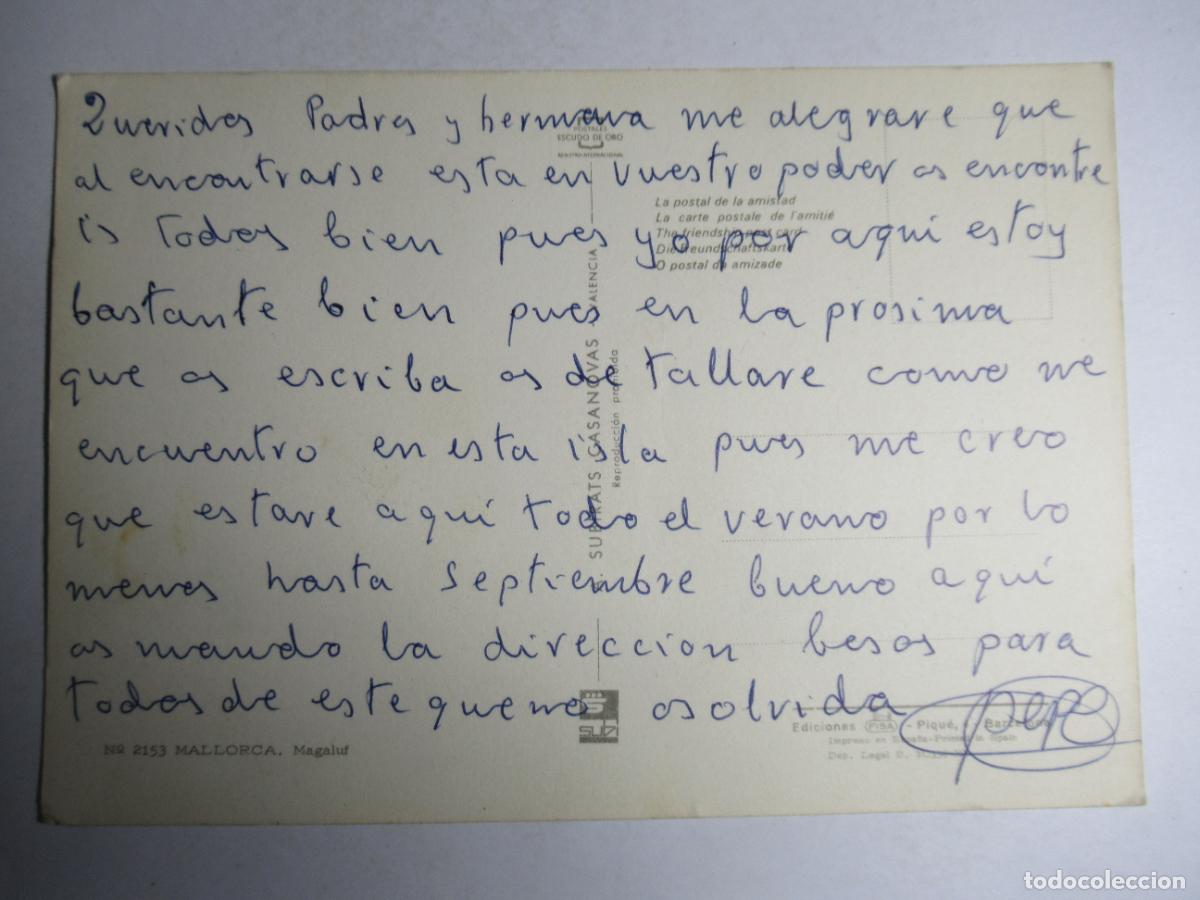 Queridos Padres y hermana me alegrare que
al encontrarse esta en vuestro poder os encontre
is todos bien pues yo por aqui estoy
bastante bien pues en la prosima
que os escriba os de tallare como me
encuentro en esta isla pues me creo
que estare aquí todo el verano por lo
menos hasta Septiembre bueno aquí
os mando la direccion besos para
todos de este que no os olvida Pepe
POSTALES
ESCUDO DE ORO
La postal de la amistad
La carte postale de l'amitié
The friendship post card
Die Freundschaftskarte
O postal da amizade
SUBIRATS CASANOVAS - VALENCIA
Reproducción prohibida
Nº 2153 MALLORCA. Magaluf
Ediciones FISA - Piqué, - Barcelona
Impreso en España-Printed in Spain
Dep. Legal B.
todocoleccion